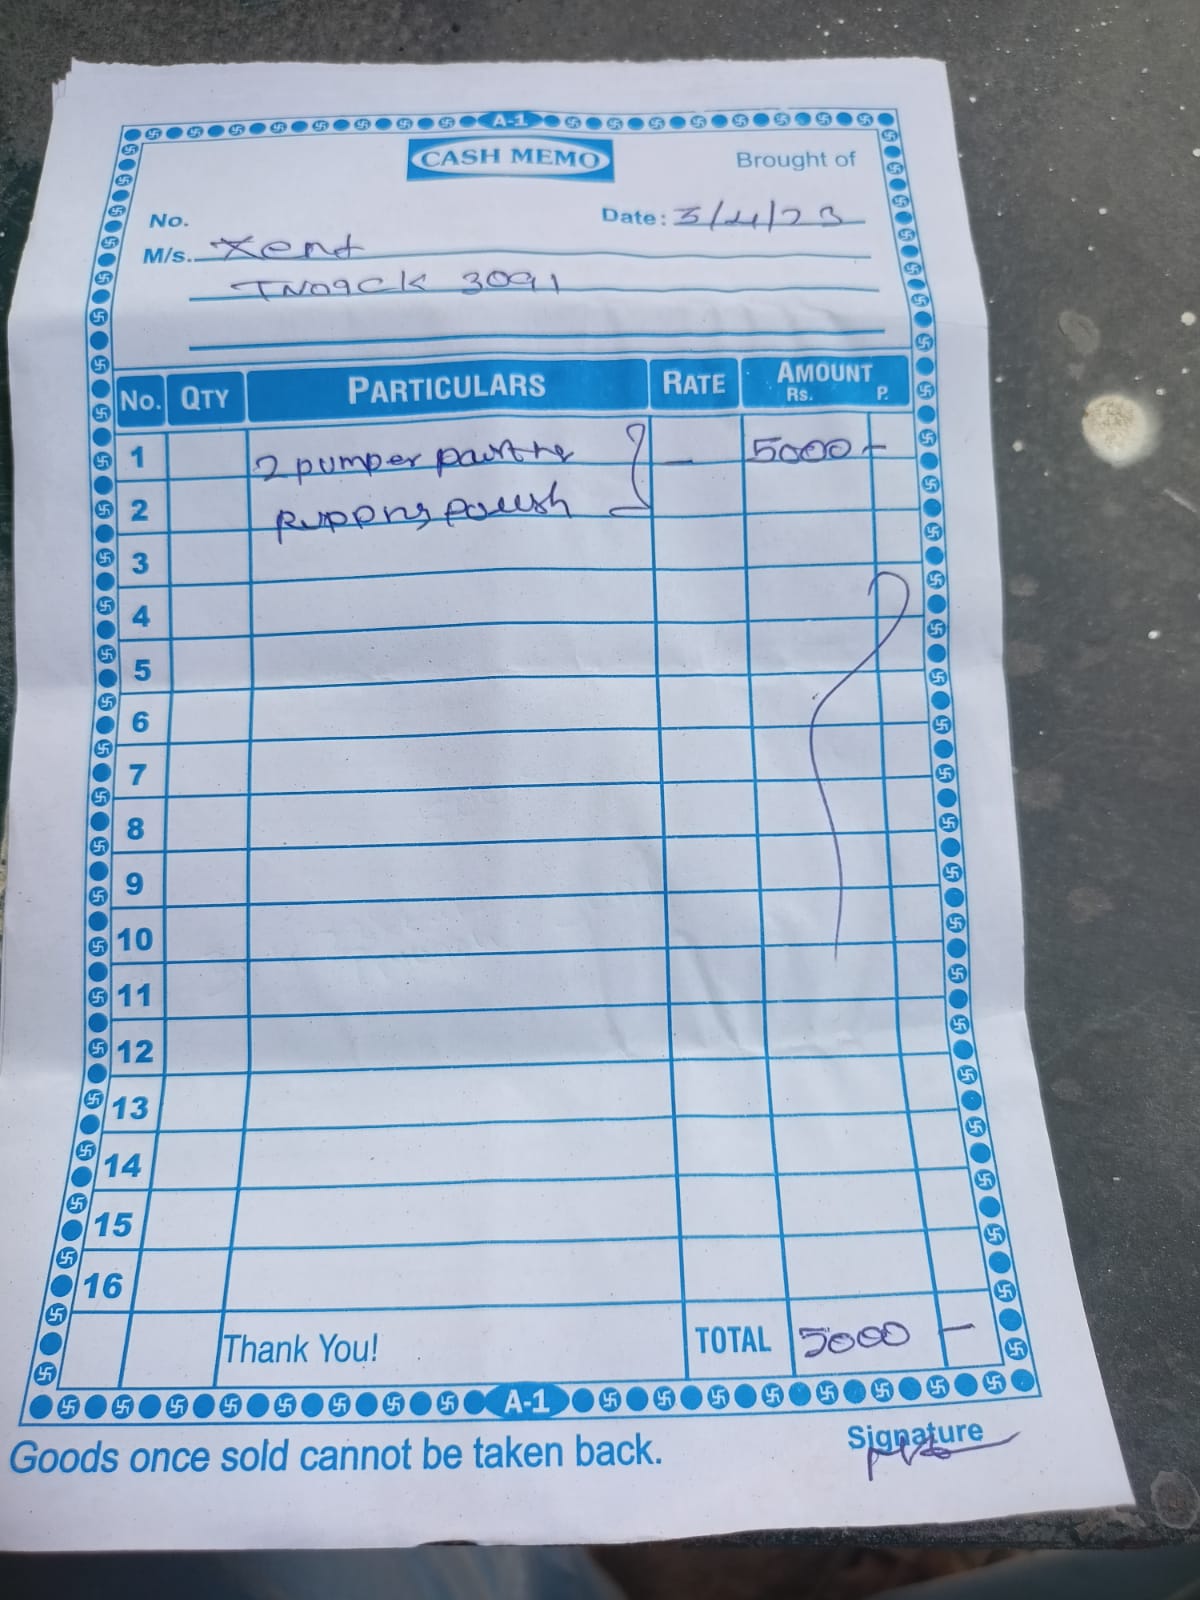 A-1
CASH MEMO
Brought of
No.
Date: 3/4/23
M/s. Xent
TN09CK 3091
No. QTY PARTICULARS RATE AMOUNT
Rs. P.
1 2 pumper - 5000 -
2 Rupping polish
3
4
5
6
7
8
9
10
11
12
13
14
15
16
Thank You! TOTAL 5000 -
A-1
Goods once sold cannot be taken back.
Signature